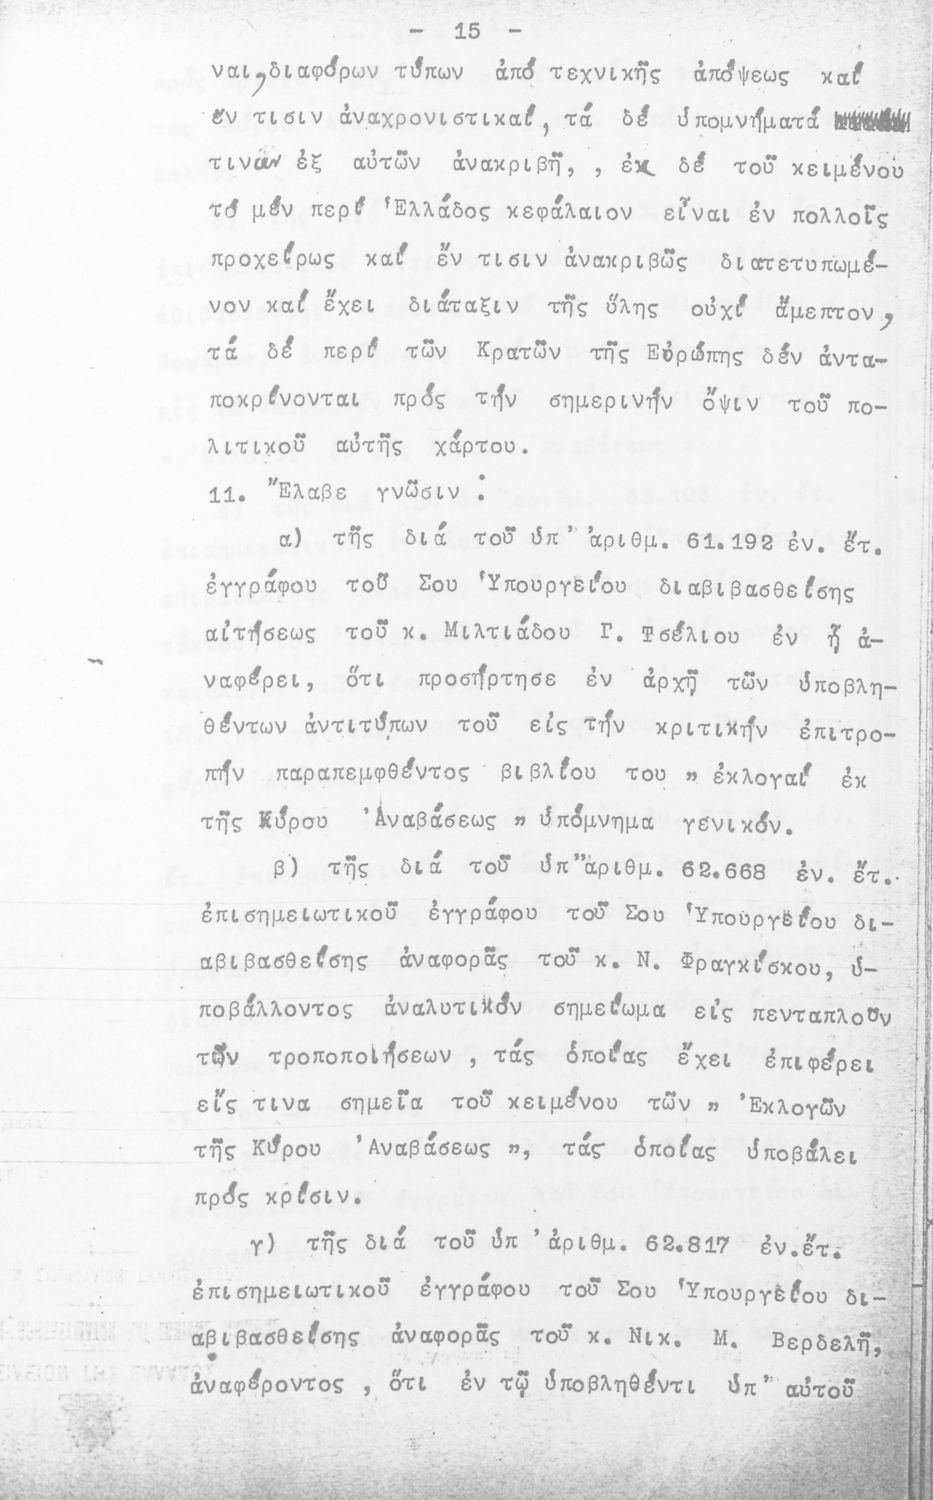 - 15 -
ναι, διαφόρων τύπων ἀπό τεχνικῆς ἀπόψεως καί
ἔν τισιν ἀναχρονιστικαί, τά δέ ὑπομνήματά
τινά ἐξ αὐτῶν ἀνακριβῆ, , ἐκ δέ τοῦ κειμένου
τό μέν περί Ἑλλάδος κεφάλαιον εἶναι ἐν πολλοῖς
προχείρως καί ἔν τισιν ἀνακριβῶς διατετυπωμέ-
νον καί ἔχει διάταξιν τῆς ὕλης οὐχί ἄμεπτον,
τά δέ περί τῶν Κρατῶν τῆς Εὐρώπης δέν ἀντα-
ποκρίνονται πρός τήν σημερινήν ὄψιν τοῦ πο-
λιτικοῦ αὐτῆς χάρτου.
11. Ἔλαβε γνῶσιν :
α) τῆς διά τοῦ ὑπ' ἀριθμ. 61.192 ἐν. ἔτ.
ἐγγράφου τοῦ Σου Ὑπουργείου διαβιβασθείσης
αἰτήσεως τοῦ κ. Μιλτιάδου Γ. Ψσέλιου ἐν ᾗ ἀ-
ναφέρει, ὅτι προσήρτησε ἐν ἀρχῇ τῶν ὑποβλη-
θέντων ἀντιτύπων τοῦ εἰς τήν κριτικήν ἐπιτρο-
πήν παραπεμφθέντος βιβλίου του " ἐκλογαί ἐκ
τῆς Κύρου Ἀναβάσεως " ὑπόμνημα γενικόν.
β) τῆς διά τοῦ ὑπ' ἀριθμ. 62.668 ἐν. ἔτ.
ἐπισημειωτικοῦ ἐγγράφου τοῦ Σου Ὑπουργείου δι-
αβιβασθείσης ἀναφορᾶς τοῦ κ. Ν. Φραγκίσκου, ὑ-
ποβάλλοντος ἀναλυτικόν σημείωμα εἰς πενταπλοῦν
τῶν τροποποιήσεων , τάς ὁποίας ἔχει ἐπιφέρει
εἴς τινα σημεῖα τοῦ κειμένου τῶν " Ἐκλογῶν
τῆς Κύρου Ἀναβάσεως ", τάς ὁποίας ὑποβάλει
πρός κρίσιν.
γ) τῆς διά τοῦ ὑπ' ἀριθμ. 62.817 ἐν.ἔτ.
ἐπισημειωτικοῦ ἐγγράφου τοῦ Σου Ὑπουργείου δι-
αβιβασθείσης ἀναφορᾶς τοῦ κ. Νικ. Μ. Βερδελῆ,
ἀναφέροντος , ὅτι ἐν τῷ ὑποβληθέντι ὑπ' αὐτοῦ